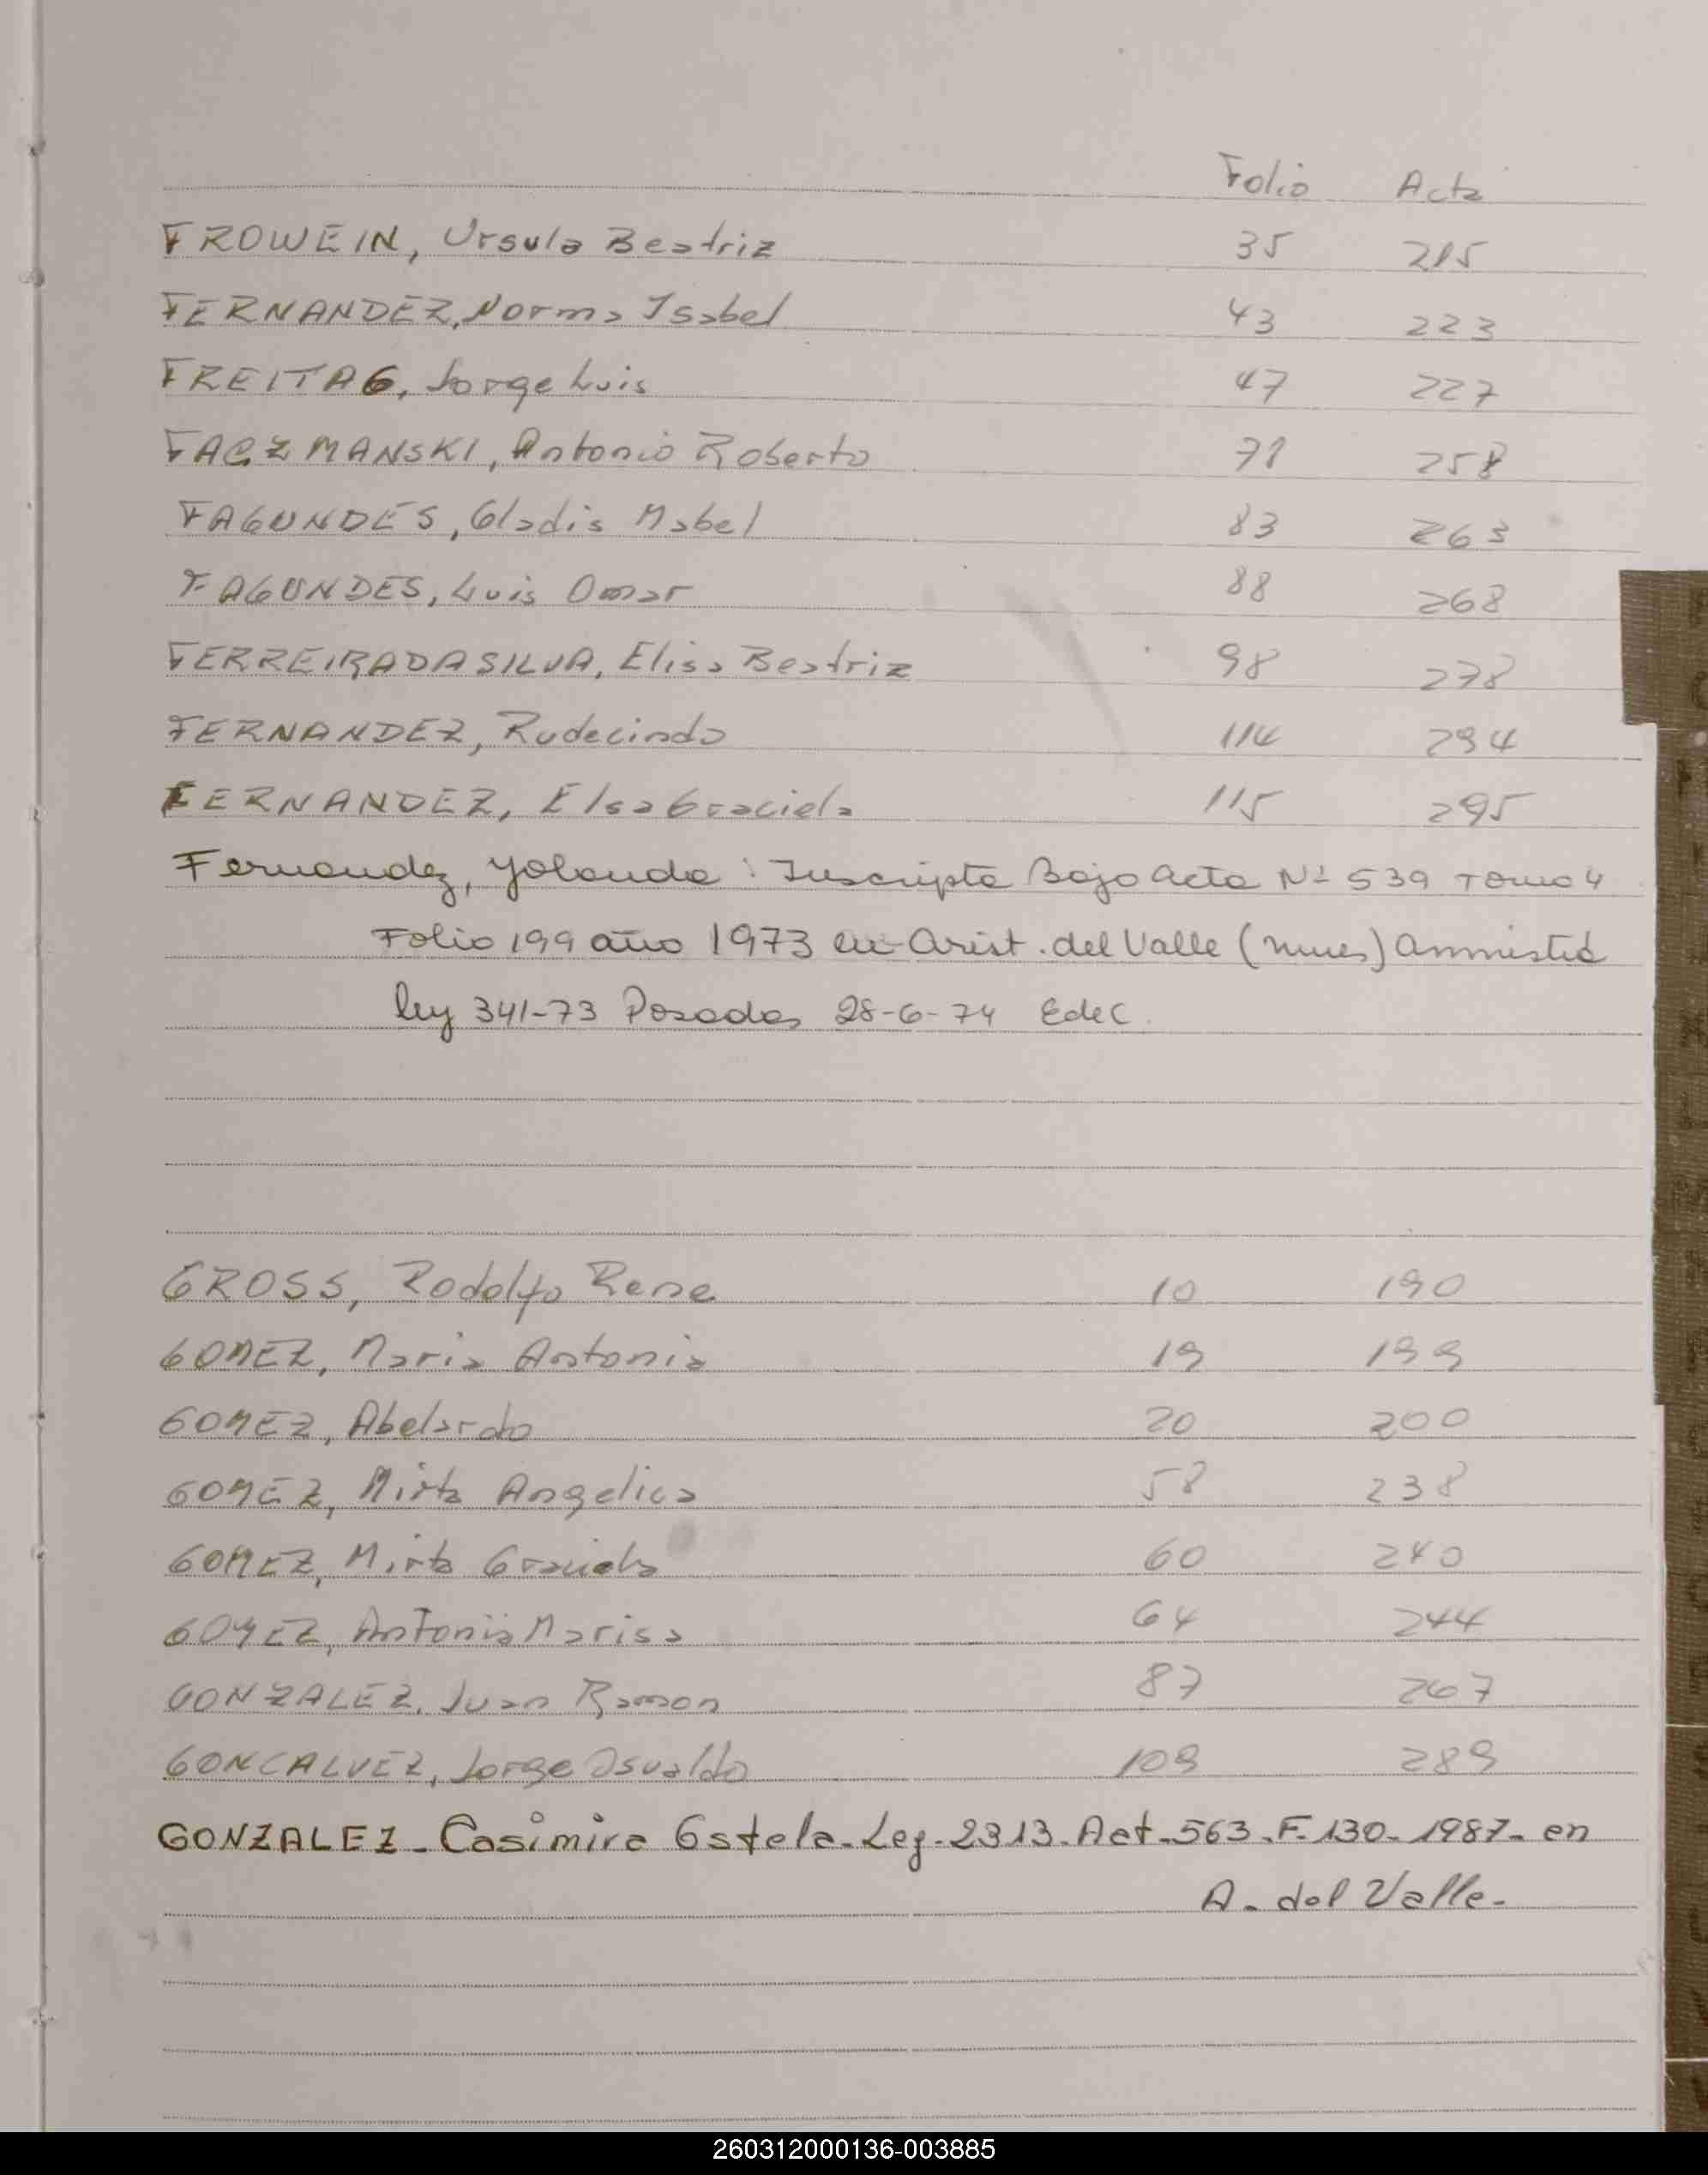 Folio Acta
FROWEIN, Ursula Beatriz 35 215
FERNANDEZ, Norma Isabel 43 223
FREITAG, Jorge Luis 47 227
FACZMANSKI, Antonio Roberto 71 258
FAGUNDES, Gladis Mabel 83 263
FAGUNDES, Luis Omar 88 268
FERREIRADASILVA, Elisa Beatriz 98 278
FERNANDEZ, Rudecindo 114 294
FERNANDEZ, Elsa Graciela 115 295
Fernandez, Yolanda : Inscripta Bajo acta Nº 539 Tomo 4
Folio 199 año 1973 en Arist. del Valle (mnes) Amnistia
ley 341-73 Posadas 28-6-74 Edec.
GROSS, Rodolfo Rene 10 190
GOMEZ, Maria Antonia 19 199
GOMEZ, Abelardo 20 200
GOMEZ, Mirta Angelica 58 238
GOMEZ, Mirta Graciela 60 240
GOMEZ, Antonia Marisa 64 244
GONZALEZ, Juan Ramon 87 267
GONCALVEZ, Jorge Osvaldo 109 289
GONZALEZ - Casimira Estela - Ley - 2313 - Act - 563 - F - 130 - 1987 - en
A. del Valle -
260312000136-003885